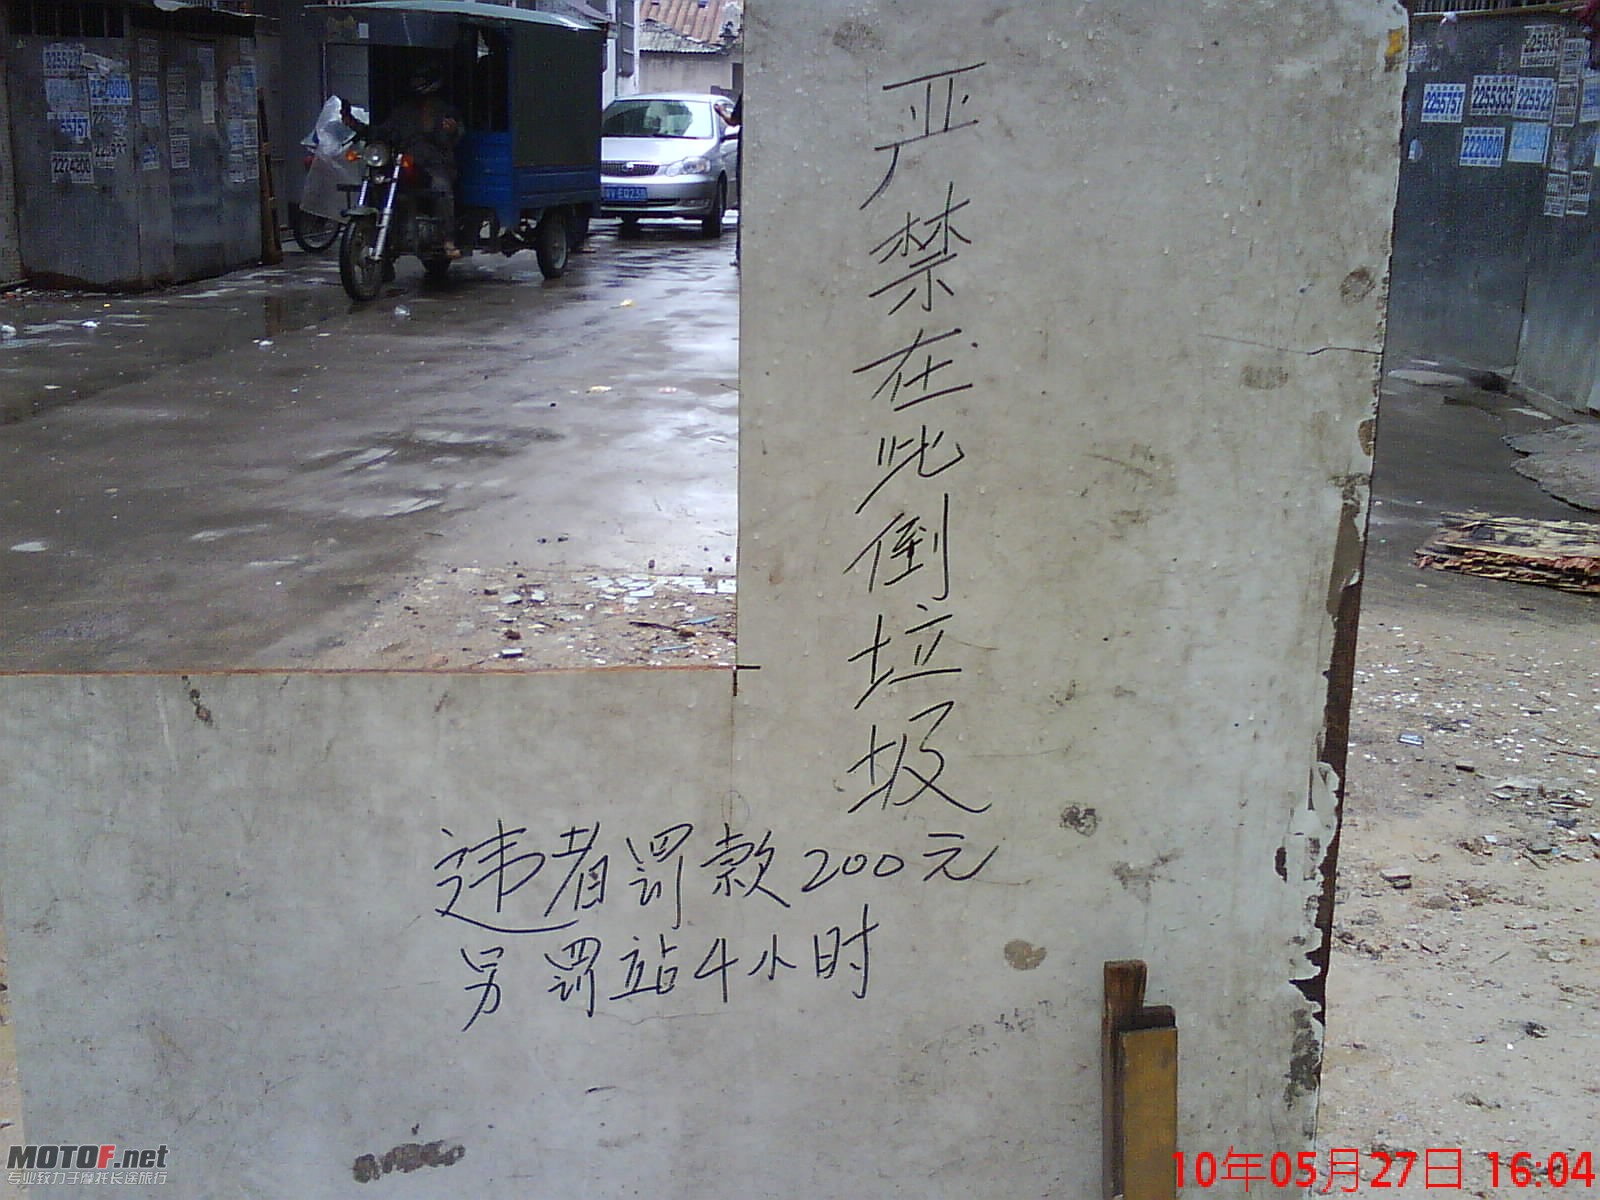 严禁在此倒垃圾
违者罚款200元
另罚站4小时
225523
2220801
2255757
2224200
225933
2255757
2255335
225522
2220801
MOTOF.net
专业致力于摩托长途旅行
10年05月27日 16:04